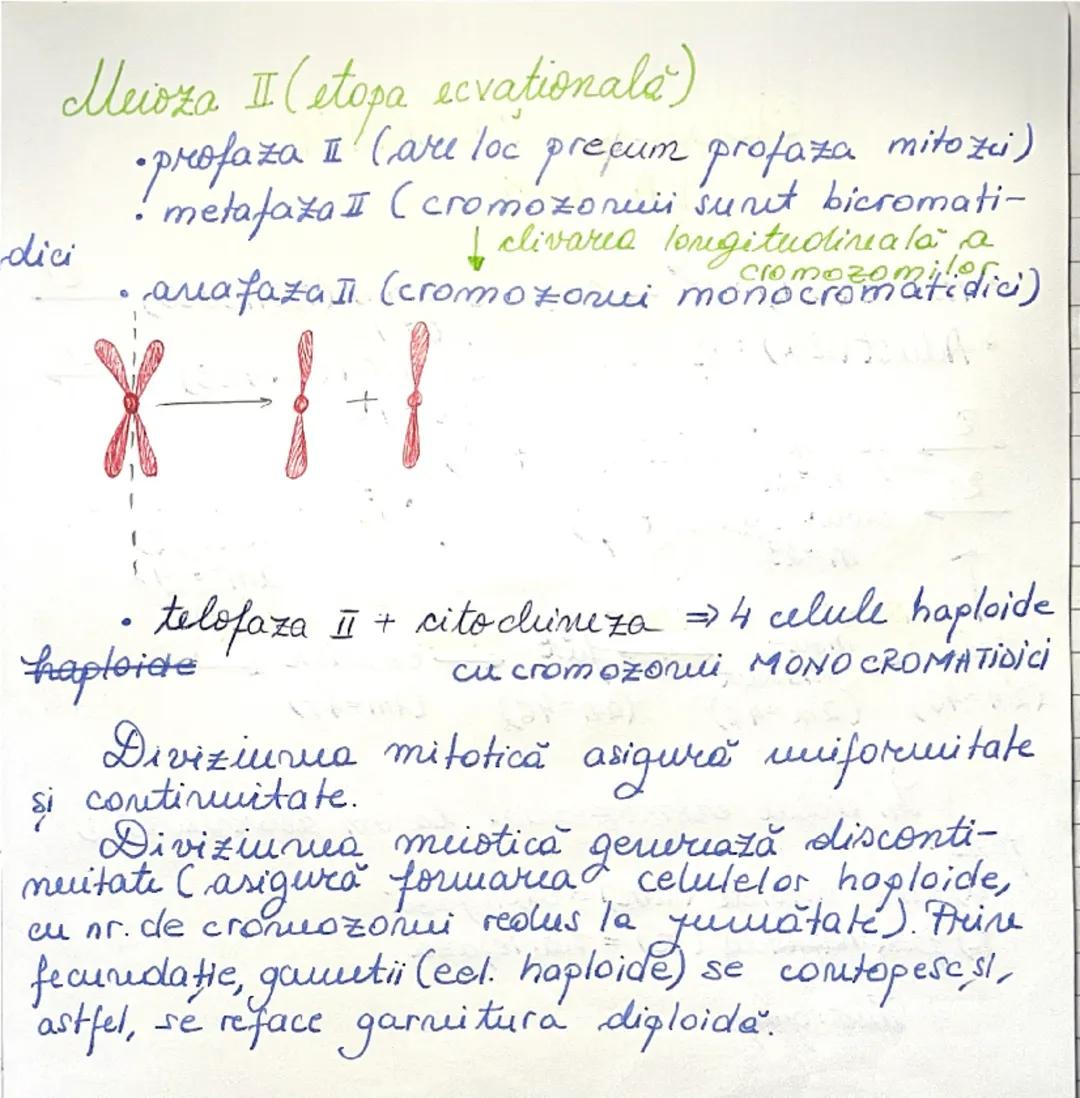 Meioza II (etapa ecvațională)
• profaza II (are loc precum profaza mitozei)
• metafaza II (cromozomii sunt bicromati-
dici
↓ clivarea longitudinală a
cromozomilor
• anafaza II (cromozomi monocromatidici)
+
• telofaza II + citochineza ⇒ 4 celule haploide
haploide
cu cromozomi MONOCROMATIDICI
Diviziunea mitotică asigură uniformitate
și continuitate.
Diviziunea meiotică generează disconti-
nuitate (asigură formarea celulelor haploide,
cu nr. de cromozomi redus la jumătate). Prin
fecundație, gameții (cel. haploide) se contopesc și,
astfel, se reface garnitura diploidă.